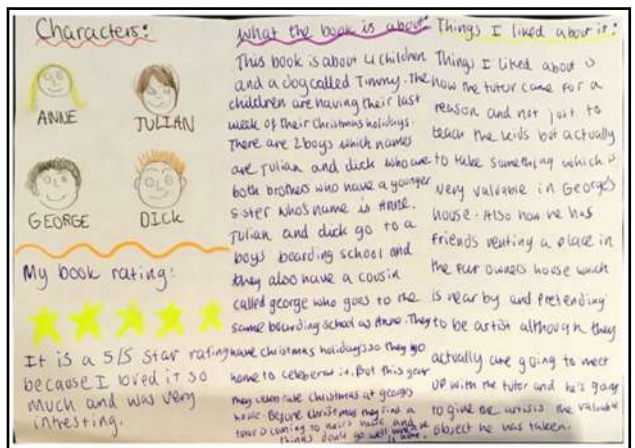 Characters:
ANNE
JULIAN
GEORGE
DICK
My book rating:
It is a 5/5 star rating
because I loved it so
much and was very
intresting.
What the book is about:
This book is about 4 children
and a dog called Timmy. The
children are having their last
week of their Christmas holidays.
There are 2 boys which names
are Julian and dick who are
both brothers who have a younger
sister who's name is Anne.
Julian and dick go to a
boys boarding school and
they also have a cousin
called george who goes to the
same boarding school as Anne. They
have christmas holidays so they go
home to it. But this year
they celebrate christmas at georges
house. Before christmas they find a
tutor is coming to house and
things don't go well
Things I liked about it:
Things I liked about is
how the tutor came for a
reason and not just to
teach the kids but actually
to take something which is
very valuable in George's
house. Also how he has
friends renting a place in
the owners house which
is near by and pretending
to be artist although they
actually are going to meet
up with the tutor and he's going
to give the artists the valuable
object he was taken.